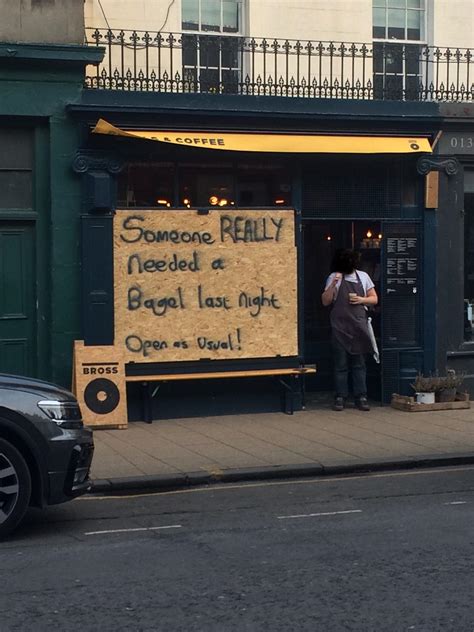 & COFFEE
013
Someone REALLY
needed a
Bagel last Night
Open as Usual!
BROSS